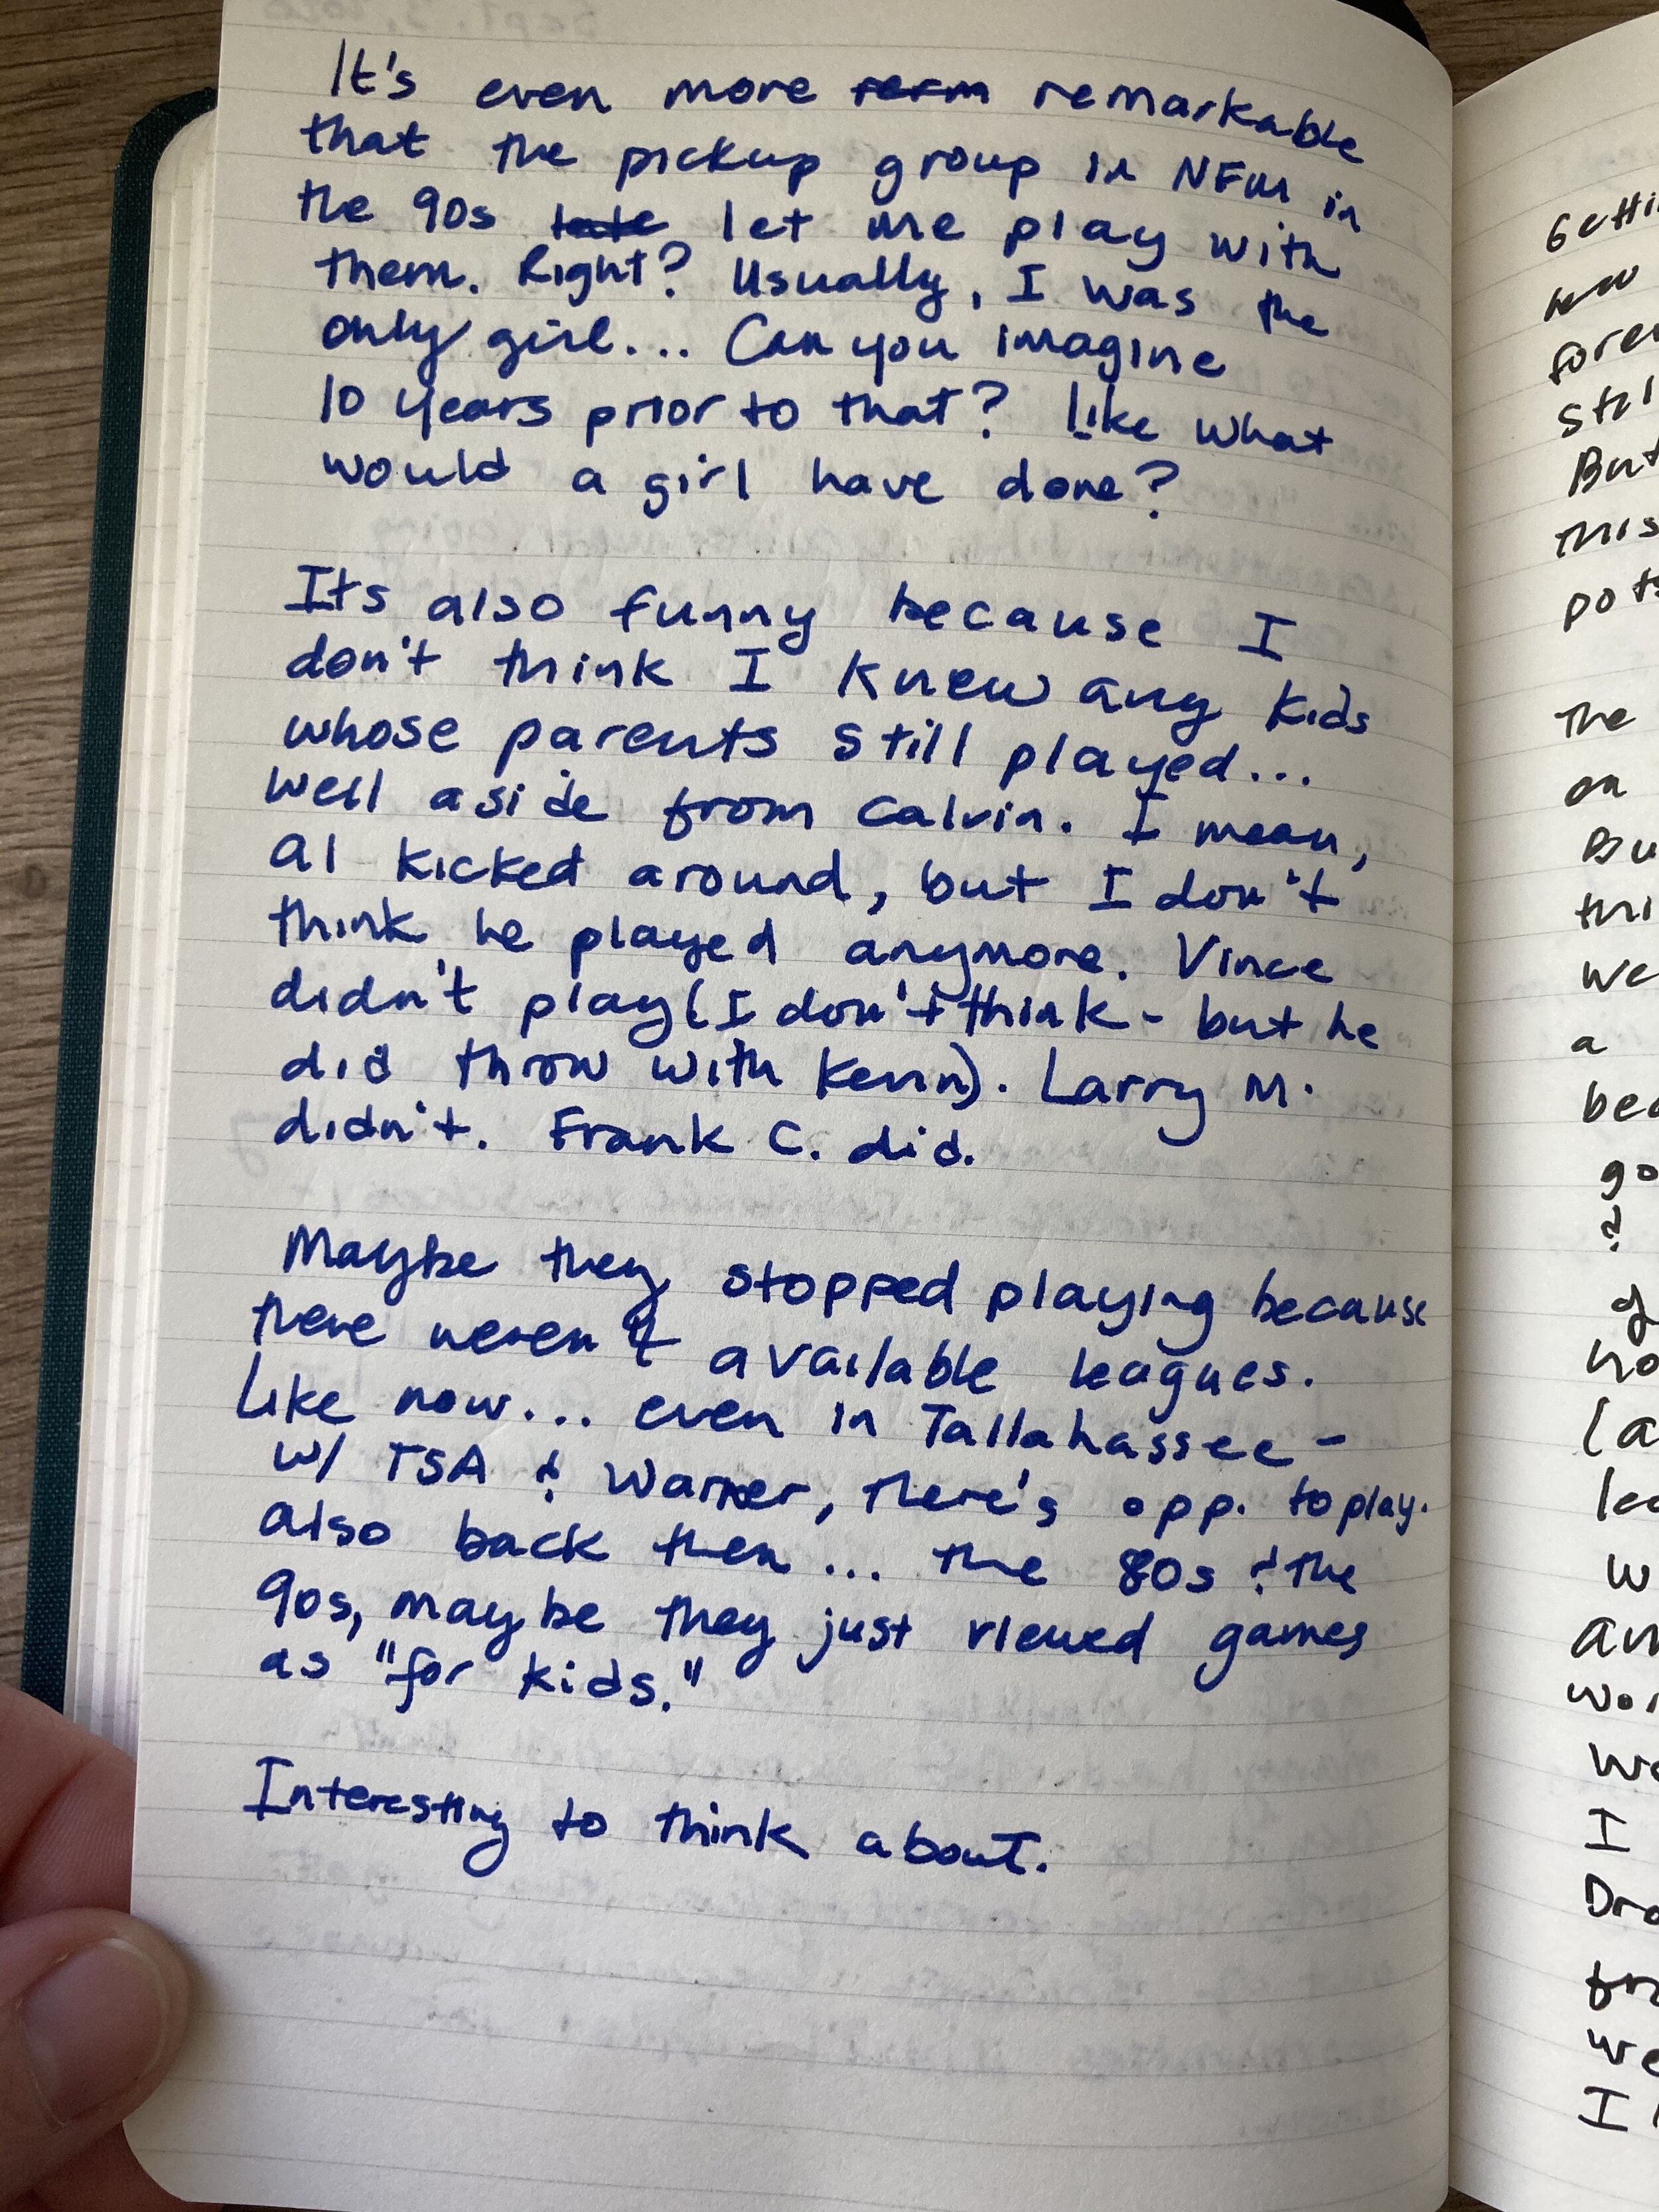 It's even more rerm remarkable
that the pickup group in NFM in
the 90s late let me play with
them. Right? Usually, I was the
only girl... Can you imagine
10 years prior to that? Like what
would a girl have done?
Its also funny because I
don't think I knew any kids
whose parents still played...
well aside from Calvin. I mean,
Al kicked around, but I don't
think he played anymore. Vince
didn't play (I don't think - but he
did throw with Kevin). Larry M.
didn't. Frank C. did.
Maybe they stopped playing because
there weren't available leagues.
Like now... even in Tallahassee -
w/ TSA & Warner, there's opp. to play.
also back then... the 80s & the
90s, maybe they just viewed games
as "for kids."
Interesting to think about.
Getti
new
forev
Stil
But
this
pots
The
on
Bu
thi
we
a
bec
go
?
of
no
(a
lea
w
an
wor
we
I
Dra
fro
we
I